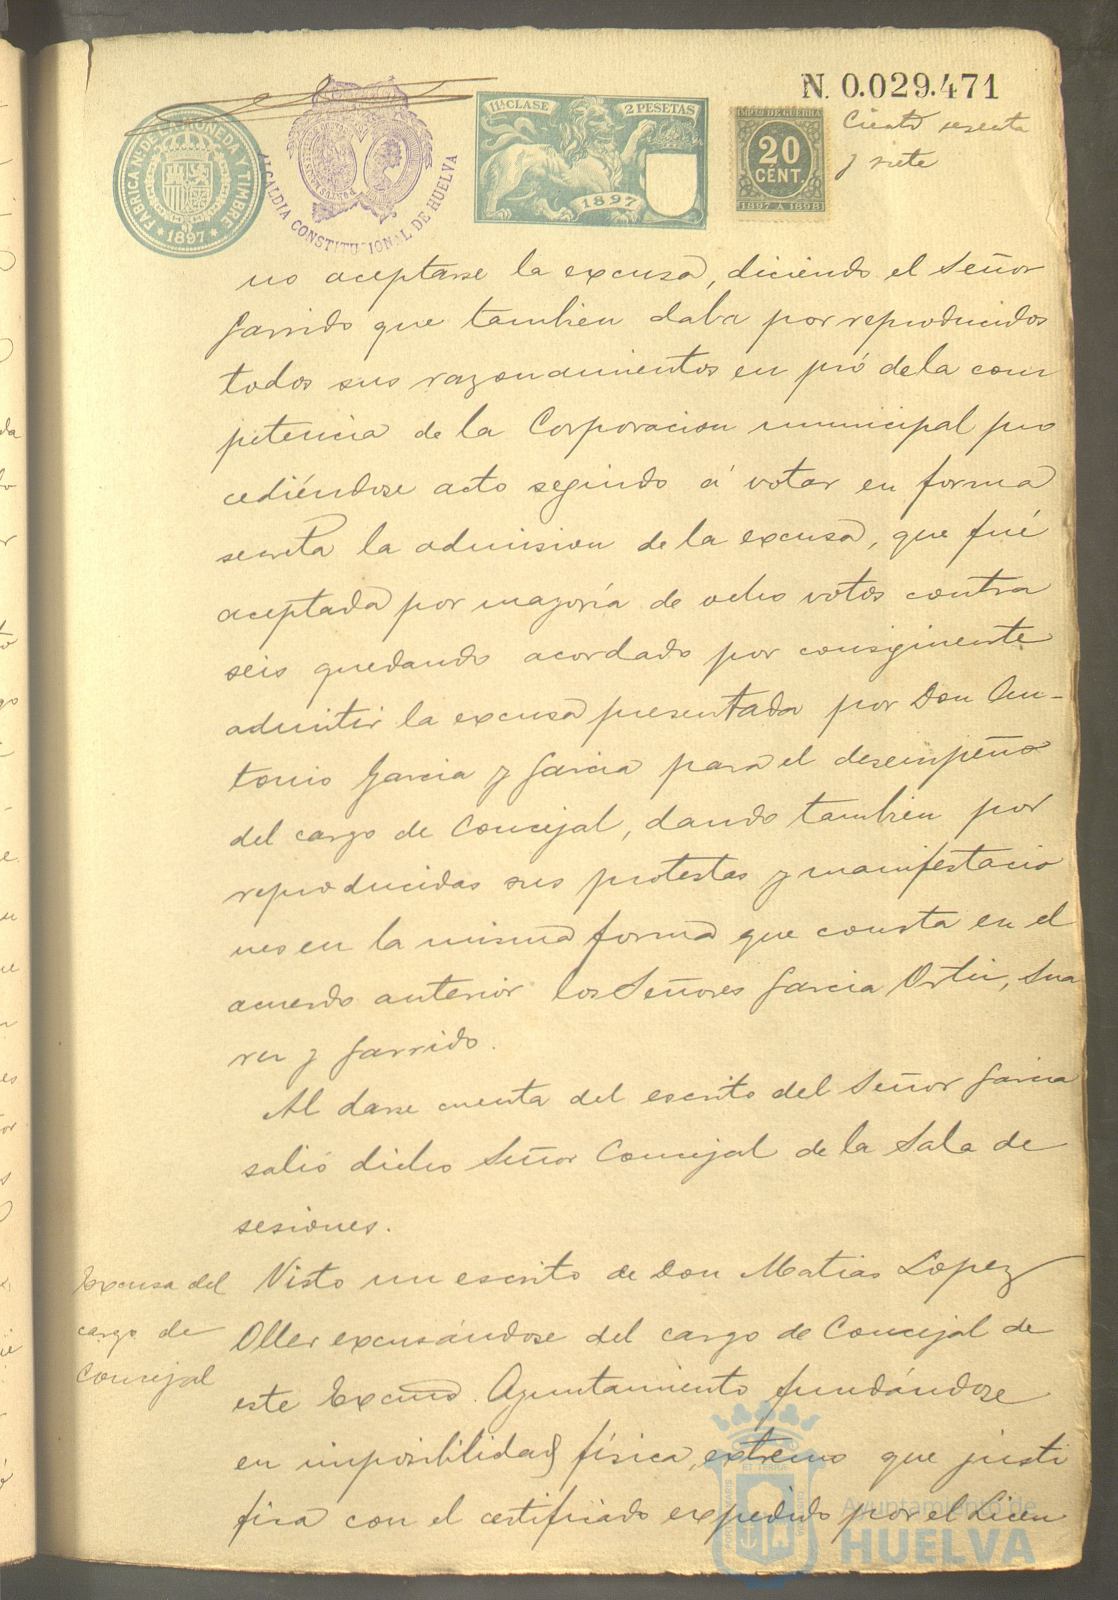 N. 0.029.471
Ciento sesenta
y siete
FABRICA N. DE LA MONEDA Y TIMBRE
* 1897 *
ALCALDIA CONSTITUCIONAL DE HUELVA
11ª CLASE 2 PESETAS
1897
IMPTO DE GUERRA
20
CÉNT.
1897 A 1898
no aceptarse la excusa, diciendo el Señor
Garrido que tambien daba por reproducidos
todos sus razonamientos en pró de la com
petencia de la Corporacion municipal pro
cediéndose acto seguido á votar en forma
secreta la admision de la excusa, que fué
aceptada por mayoría de ocho votos contra
seis quedando acordado por consiguiente
admitir la excusa presentada por Don An-
tonio Garcia y Garcia para el desempeño
del cargo de Concejal, dando tambien por
reproducidas sus protestas y manifestacio
nes en la misma forma que consta en el
acuerdo anterior los Señores Garcia Ortiz, Sua
rez y Garrido.
Al darse cuenta del escrito del Señor Garcia
salió dicho Señor Concejal de la Sala de
sesiones.
Excusa del
cargo de
Concejal
Visto un escrito de Don Matias Lopez
Oller excusándose del cargo de Concejal de
este Excmo. Ayuntamiento fundándose
en imposibilidad física, extremo que justi
fica con el certificado expedido por el Licen
Ayuntamiento de
HUELVA